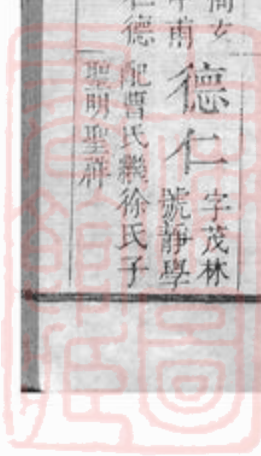 仁德
德仁
字茂林
號靜學
配曹氏繼徐氏子
聖明聖祥